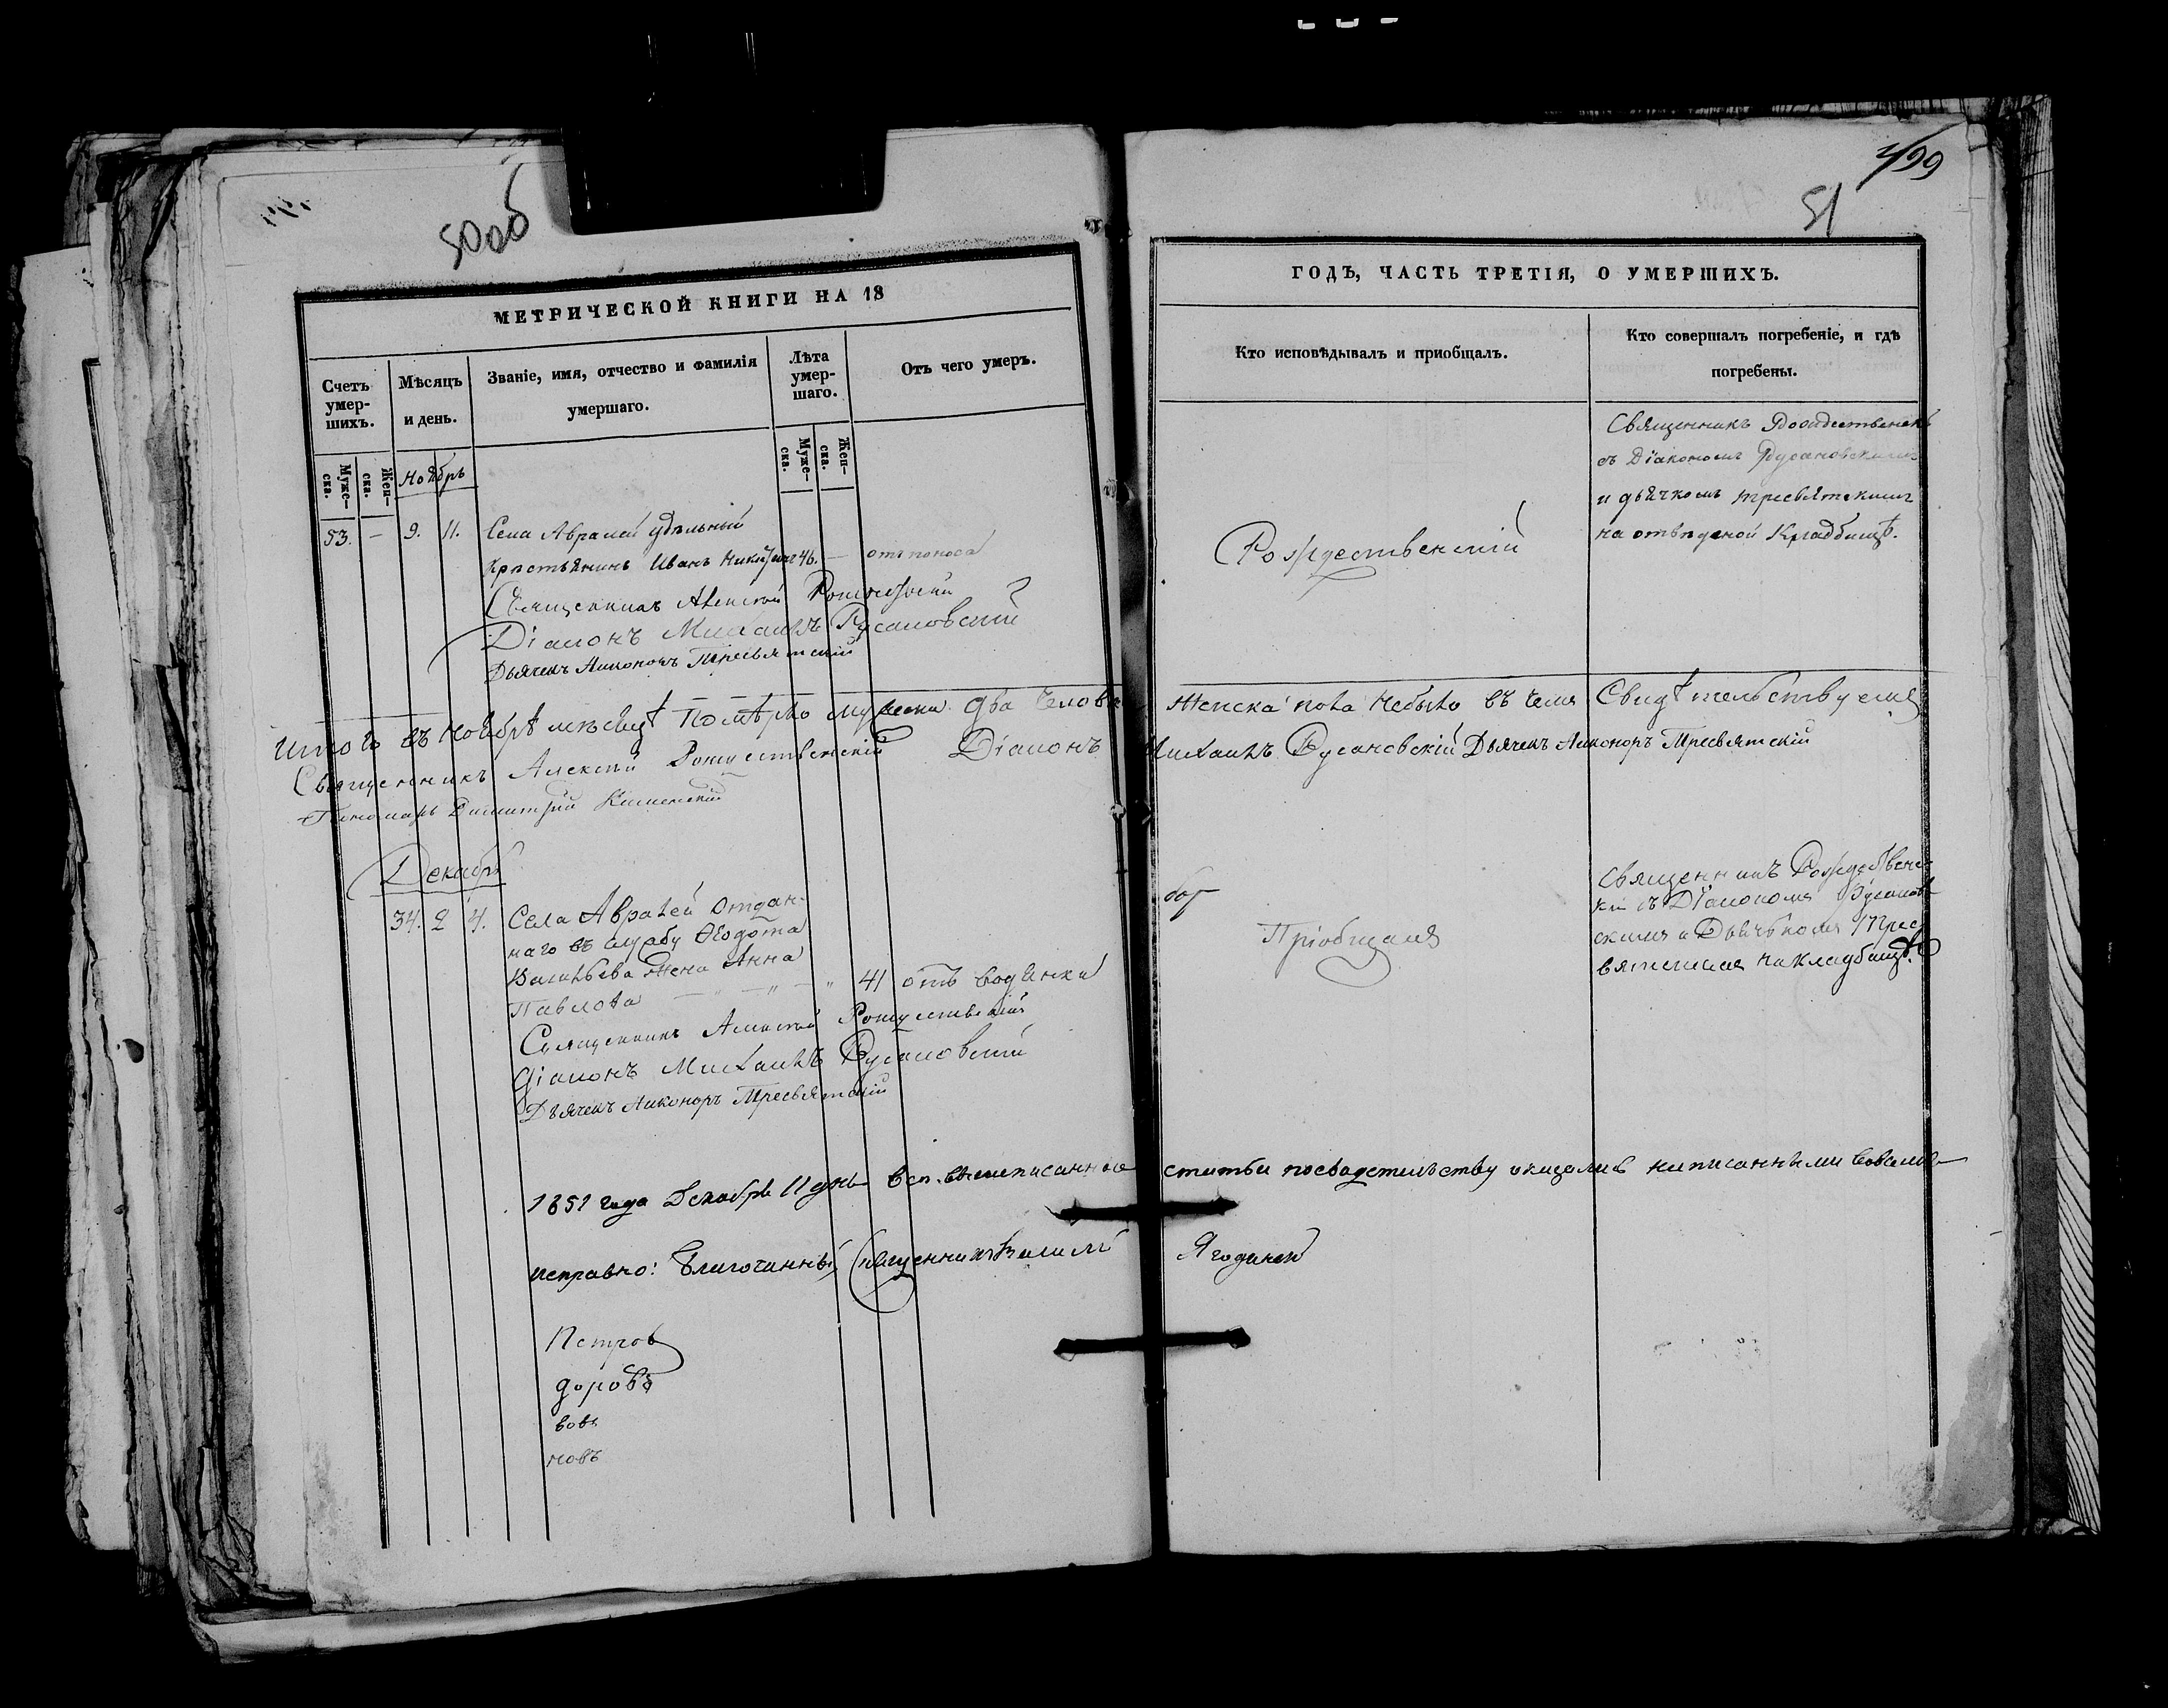 50об
499
51
МЕТРИЧЕСКОЙ КНИГИ НА 18
ГОДЪ, ЧАСТЬ ТРЕТІЯ, О УМЕРШИХЪ.
Счетъ умер-шихъ.
Мѣсяцъ и день.
Званіе, имя, отчество и фамилія умершаго.
Лѣта умер-шаго.
Отъ чего умеръ.
Кто исповѣдывалъ и приобщалъ.
Кто совершалъ погребеніе, и гдѣ погребены.
Муже-ска.
Жен-ска.
Муже-ска.
Жен-ска.
Ноябрь
53. — 9. 11. Села Авралей удѣльный
крестьянинъ Иванъ Никитинъ 46. — отъ поноса
Священникъ Алексѣй Рождественскій
Діаконъ Михаилъ Русановскій
Дьячекъ Никоноръ Тресвятскій
Рождественскій
Священникъ Рождественскій
съ Діакономъ Русановскимъ
и дьячкомъ Тресвятскимъ
на отведеной Кладбищѣ.
Итого въ Ноябрѣ мѣсяцѣ Померло мужеска два челове
Женска пола небыло въ чемъ Свидѣтельствуемъ
Священникъ Алексѣй Рождественскій Діаконъ
Михаилъ Русановскій Дьячекъ Никоноръ Тресвятскій
Пономарь Димитрій
Декабрь
34. 2 4. Села Авралей отдан-
наго въ службу Ѳедота
Васильева жена Анна
Павлова — „ — „ — „ 41 отъ водянки
Священникъ Алексѣй Рождественскій
Діаконъ Михаилъ Русановскій
Дьячекъ Никоноръ Тресвятскій
Пріобщалъ
Священникъ Рождественс
кій съ Діакономъ Русанов
скимъ и Дьячькомъ Трес
вятскимъ на кладбищѣ.
1851 года Декабря 11 дня вышеписанное
статьи по свидетельству оказались написанными
исправно: Благочинный Священникъ Василій
Ягодинск
Петров
доровъ
вовъ
новъ